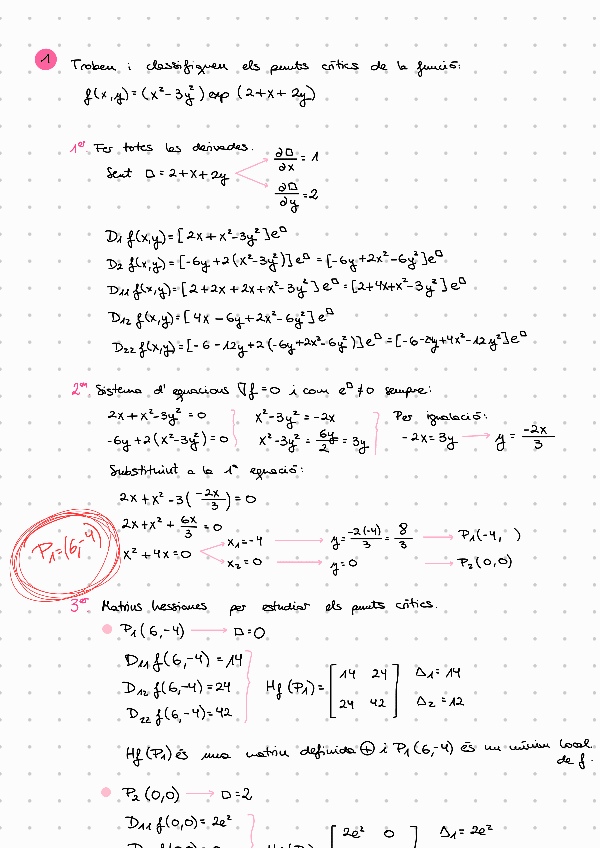 1
Troben i classifiquen els punts crítics de la funció:
f(x,y)=(x²-3y²) exp (2+x+2y)
1er Fer totes les derivades.
Sent □=2+x+2y
∂□/∂x = 1
∂□/∂y = 2
D1 f(x,y)=[2x+x²-3y²]e^□
D2 f(x,y)=[-6y+2(x²-3y²)]e^□=[-6y+2x²-6y²]e^□
D11 f(x,y)=[2+2x+2x+x²-3y²]e^□=[2+4x+x²-3y²]e^□
D12 f(x,y)=[4x-6y+2x²-6y²]e^□
D22 f(x,y)=[-6-12y+2(-6y+2x²-6y²)]e^□=[-6-24y+4x²-12y²]e^□
2on Sistema d'equacions ∇f=0 i com e^□≠0 sempre:
2x+x²-3y²=0 x²-3y²=-2x Per igualació:
-6y+2(x²-3y²)=0 x²-3y²=6y/2=3y -2x=3y → y=-2x/3
Substituint a la 1ª equació:
2x+x²-3(-2x/3)=0
2x+x²+6x/3=0
x²+4x=0
x1=-4 → y=-2(-4)/3=8/3 → P1(-4, )
x2=0 → y=0 → P2(0,0)
P1=(6,-4)
3er Matrius hessianes per estudiar els punts crítics.
P1(6,-4) → □=0
D11 f(6,-4)=14
D12 f(6,-4)=24
D22 f(6,-4)=42
Hf(P1)=[14 24
24 42]
Δ1=14
Δ2=12
Hf(P1) és una matriu definida ⊕ i P1(6,-4) és un mínim local
de f.
P2(0,0) → □=2
D11 f(0,0)=2e²
2e² 0 Δ1=2e²